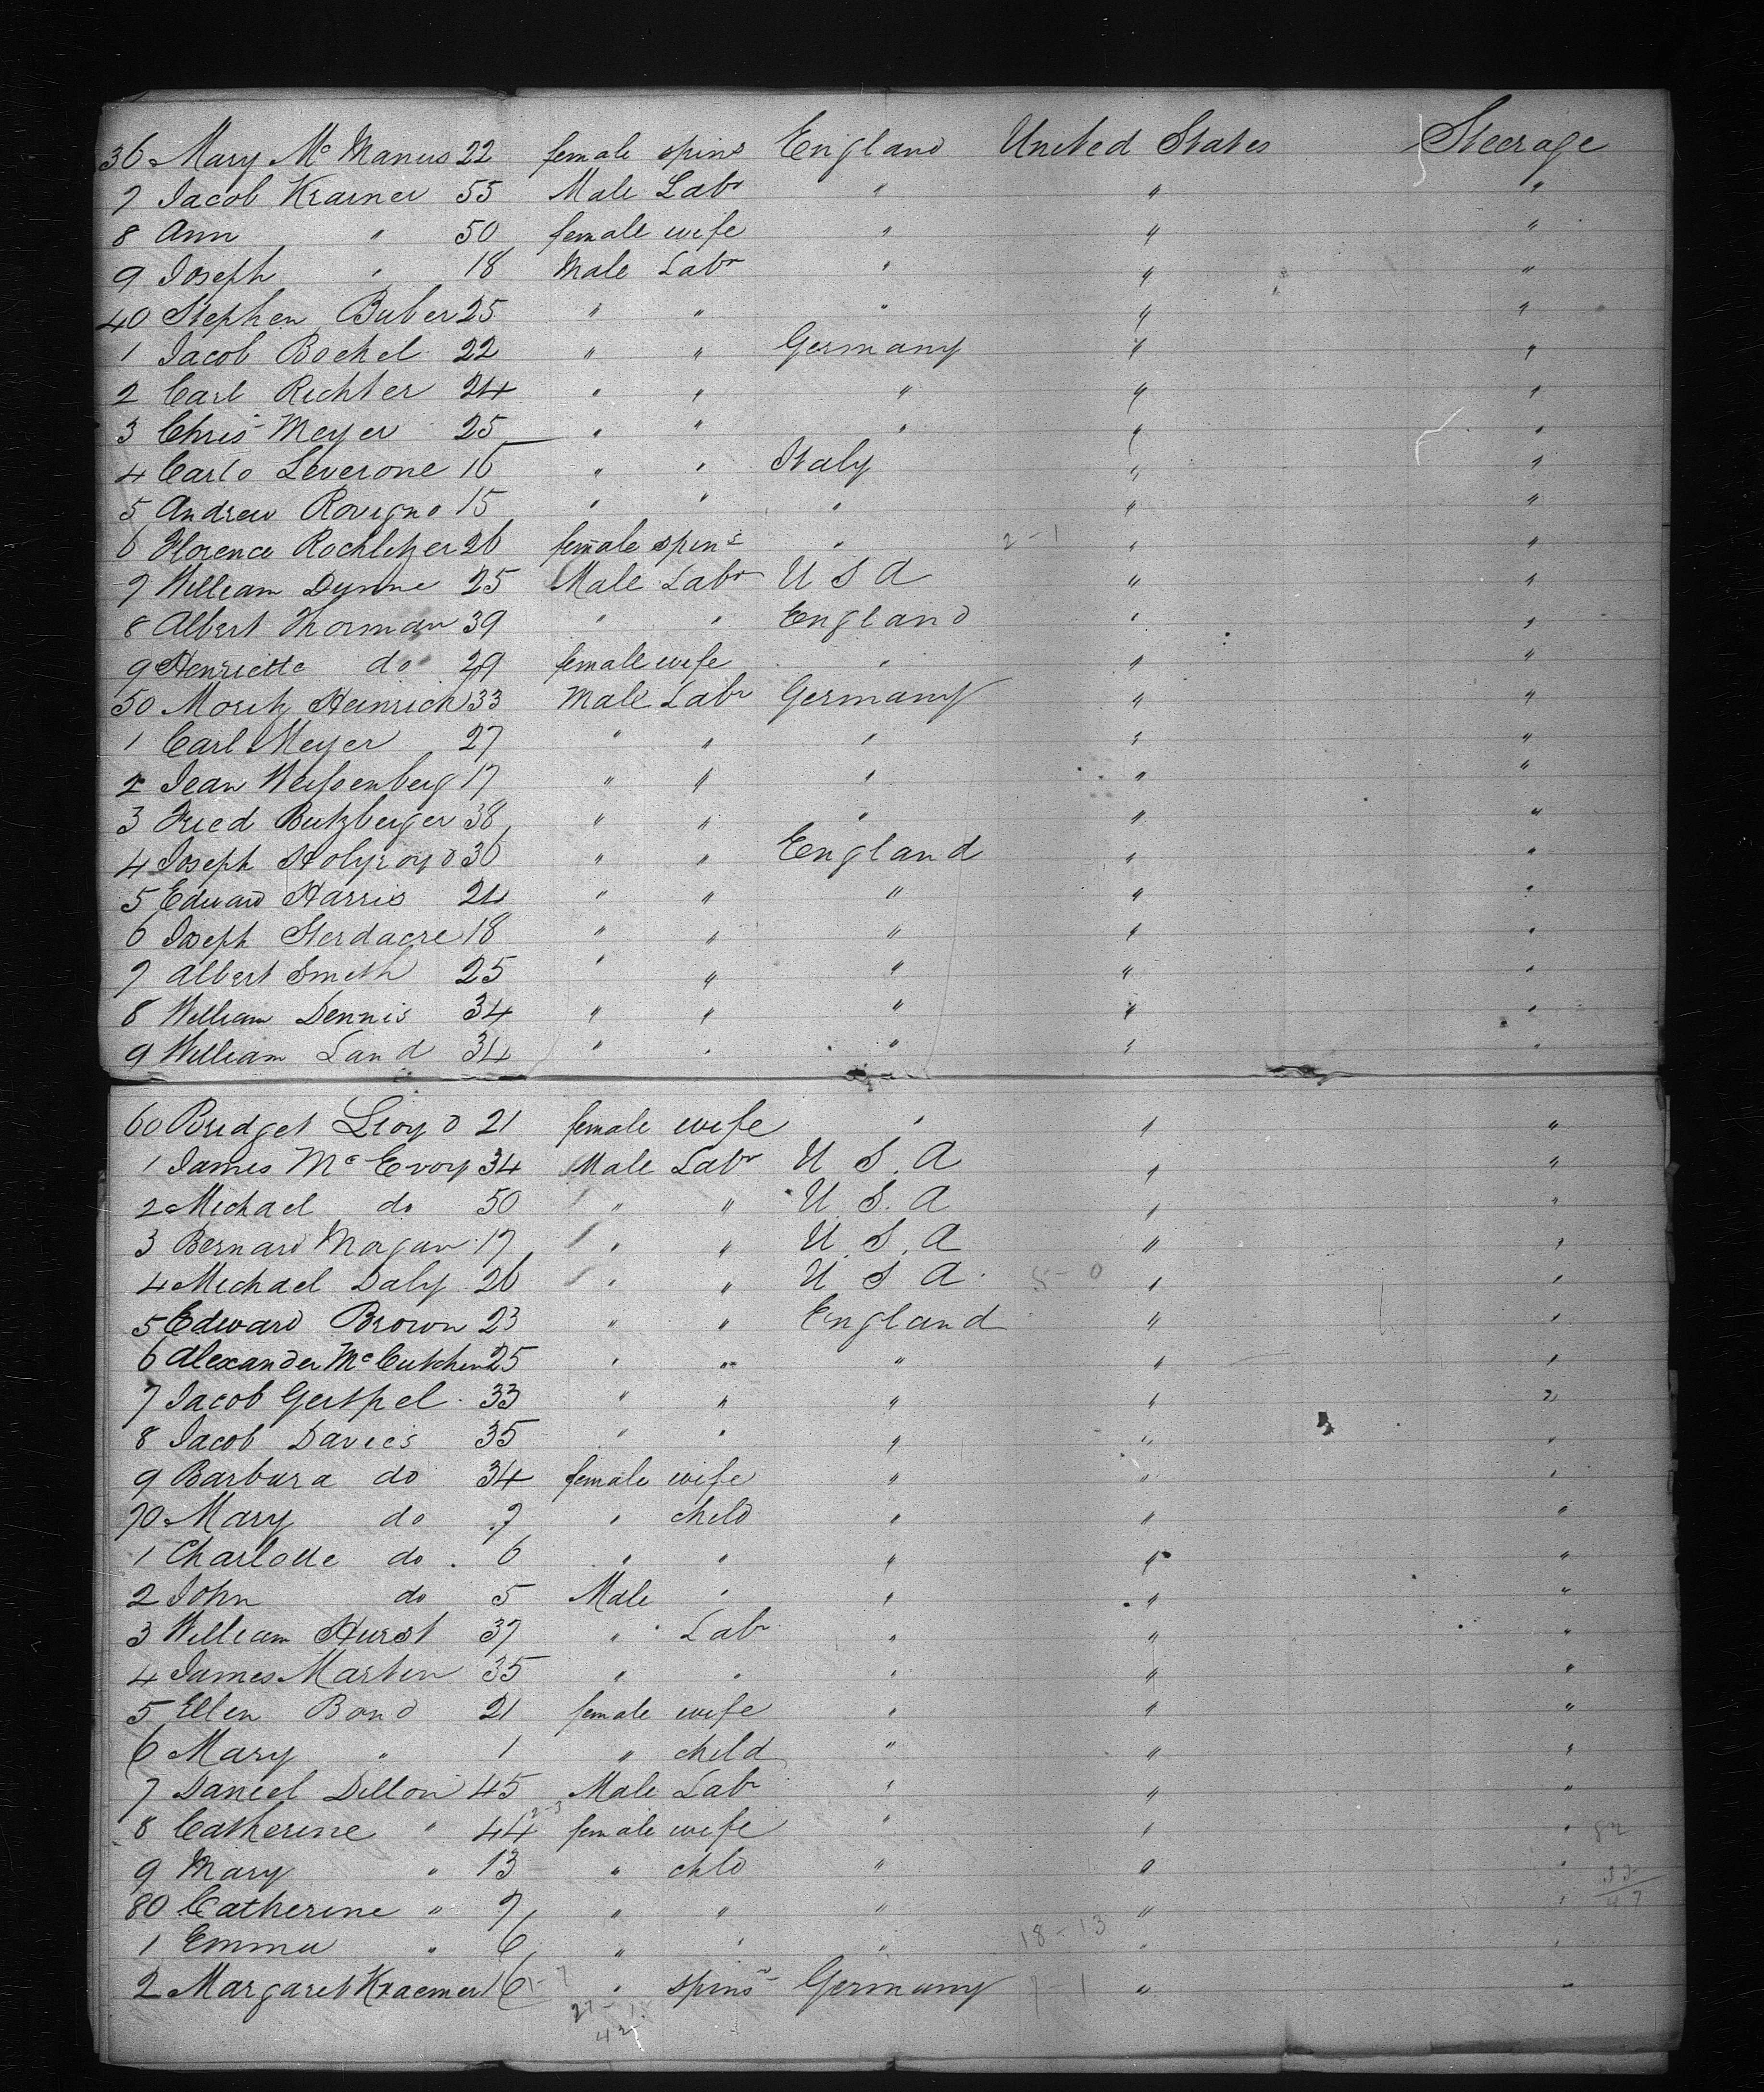 36 Mary Mc Manus 22 female spins England United States Steerage
7 Jacob Krarner 55 Male Labr " " "
8 Ann " 50 female wife " " "
9 Joseph " 18 Male Labr " " "
40 Stephen Buber 25 " " " " "
1 Jacob Bockel 22 " " Germany " "
2 Carl Richter 24 " " " " "
3 Chris Meyer 25 " " " " "
4 Carlo Leverone 16 " " Italy " "
5 Andrew Rovigno 15 " " " " "
6 Florence Rochlitzer 26 female spins " 2-1 " "
7 William Dynne 25 Male Labr U S A " "
8 Albert Thorman 39 " " England " "
9 Henriette do 29 female wife " " "
50 Moritz Heinrich 33 Male Labr Germany " "
1 Carl Meyer 27 " " " " "
2 Jean Weissenberg 17 " " " " "
3 Fried Butzberger 38 " " " " "
4 Joseph Holyroyd 36 " " England " "
5 Edward Harris 24 " " " " "
6 Joseph Sterdacre 18 " " " " "
7 Albert Smith 25 " " " " "
8 William Dennis 34 " " " " "
9 William Land 34 " " " " "
60 Bridget Lloyd 21 female wife " " "
1 James Mc Evoy 34 Male Labr U S. A " "
2 Michael do 50 " " U. S. A " "
3 Bernard Morgan 17 " " U. S. A " "
4 Michael Daly 26 " " U S A. 5-0 " "
5 Edward Brown 23 " " England " "
6 Alexander Mc Cutchen 25 " " " " "
7 Jacob Gerspel 33 " " " " "
8 Jacob Davies 35 " " " " "
9 Barbara do 34 female wife " " "
70 Mary do 7 " child " " "
1 Charlotte do 6 " " " " "
2 John do 5 Male " " " "
3 William Hurst 37 " Labr " " "
4 James Martin 35 " " " " "
5 Ellen Bond 21 female wife " " "
6 Mary " 1 " child " " "
7 Daniel Dillon 45 Male Labr " " "
8 Catherine " 44 2-3 female wife " " " 82
9 Mary " 13 " chld " " "
80 Catherine " 7 " " " " " 47
1 Emma " 6 " " " 18-13 " "
2 Margaret Kraemer 16 " spins Germany 7-1 " "